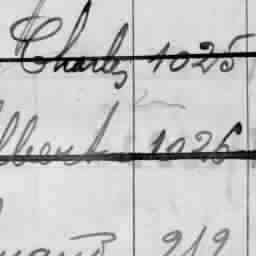 Charles 1025
lbert 1026
212